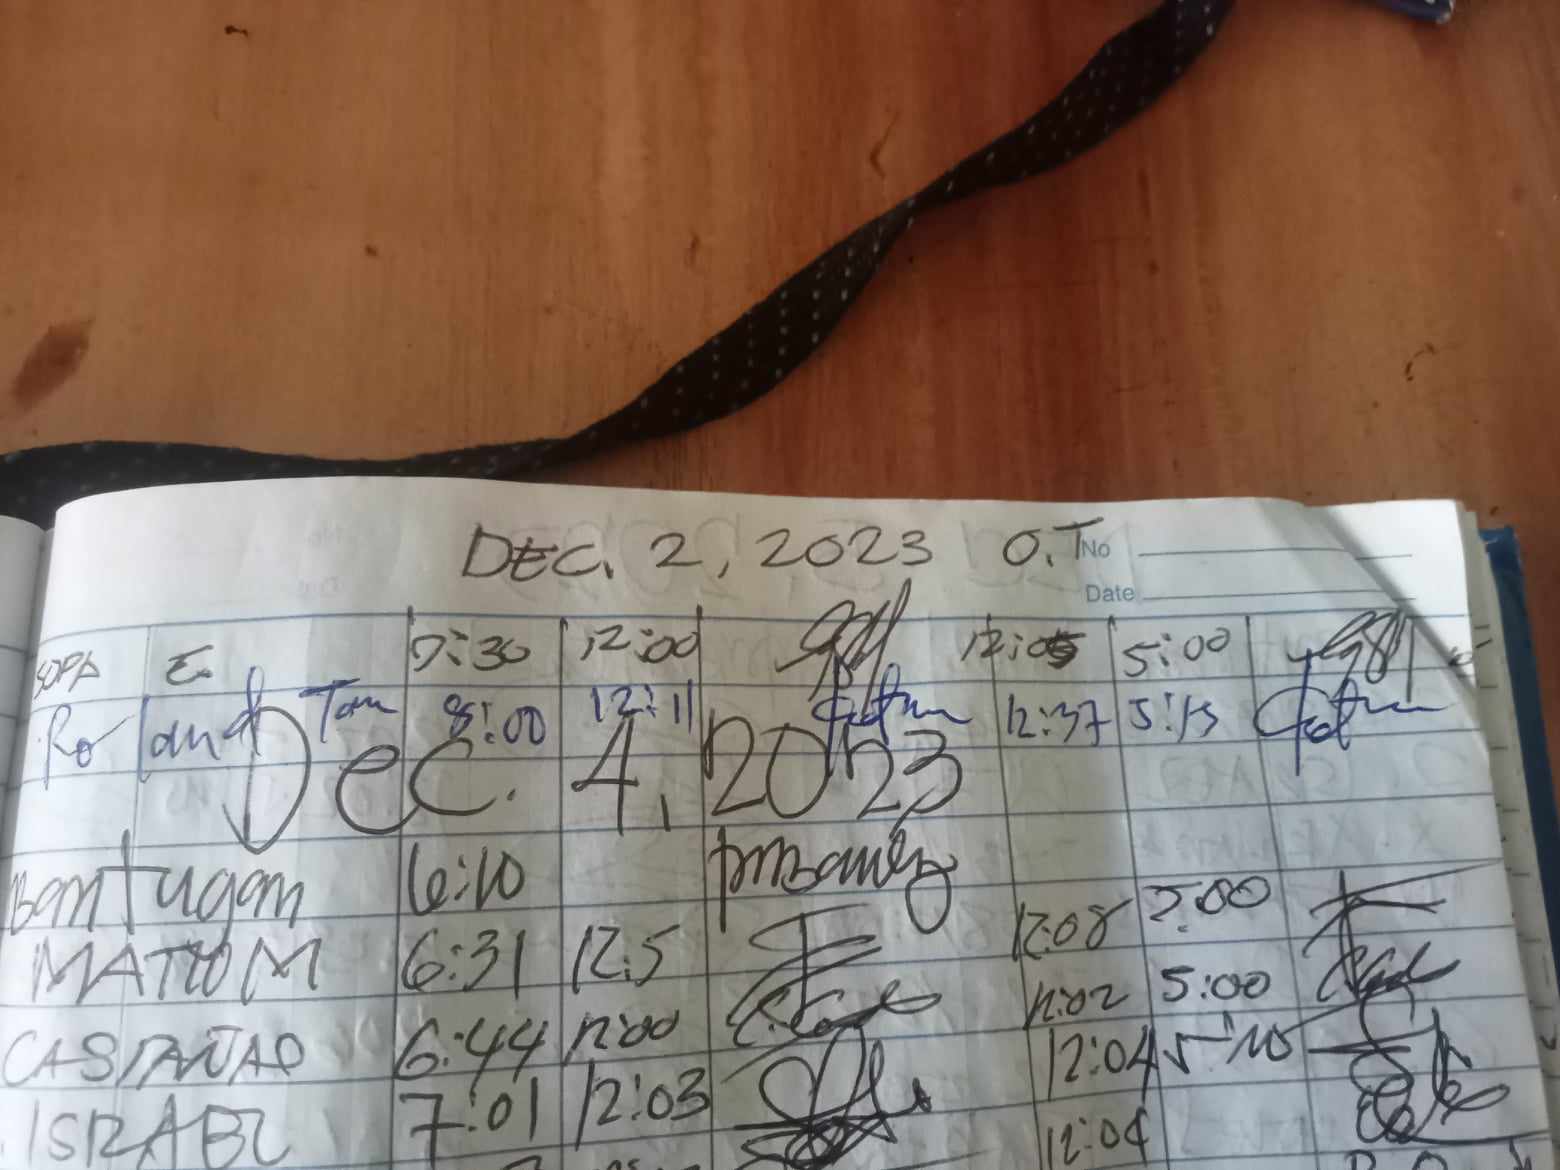 DEC. 2, 2023 O.T
No
Date
SOPA E. 7:30 12:00 12:05 5:00
Roland Tan 8:00 12:11 12:37 5:15
Dec. 4, 2023
Bantugan 6:10
MATIOM 6:31 12:5 12:08 5:00
CASTAÑAO 6:44 12:00 12:02 5:00
ISRAEL 7:01 12:03 12:04
12:04